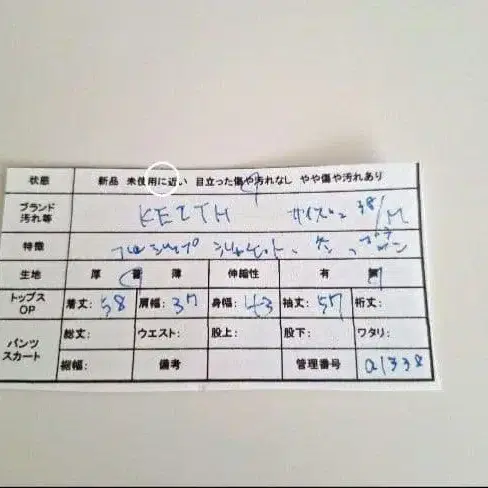 状態 新品 未使用に近い 目立った傷や汚れなし やや傷や汚れあり
ブランド 汚れ等 KEITH サイズ: 38/M
特徴
生地 厚 普 薄 伸縮性 有 無
トップス OP 着丈: 58 肩幅: 37 身幅: 43 袖丈: 57 裄丈:
パンツ スカート 総丈: ウエスト: 股上: 股下: ワタリ:
裾幅: 備考 管理番号 a1338